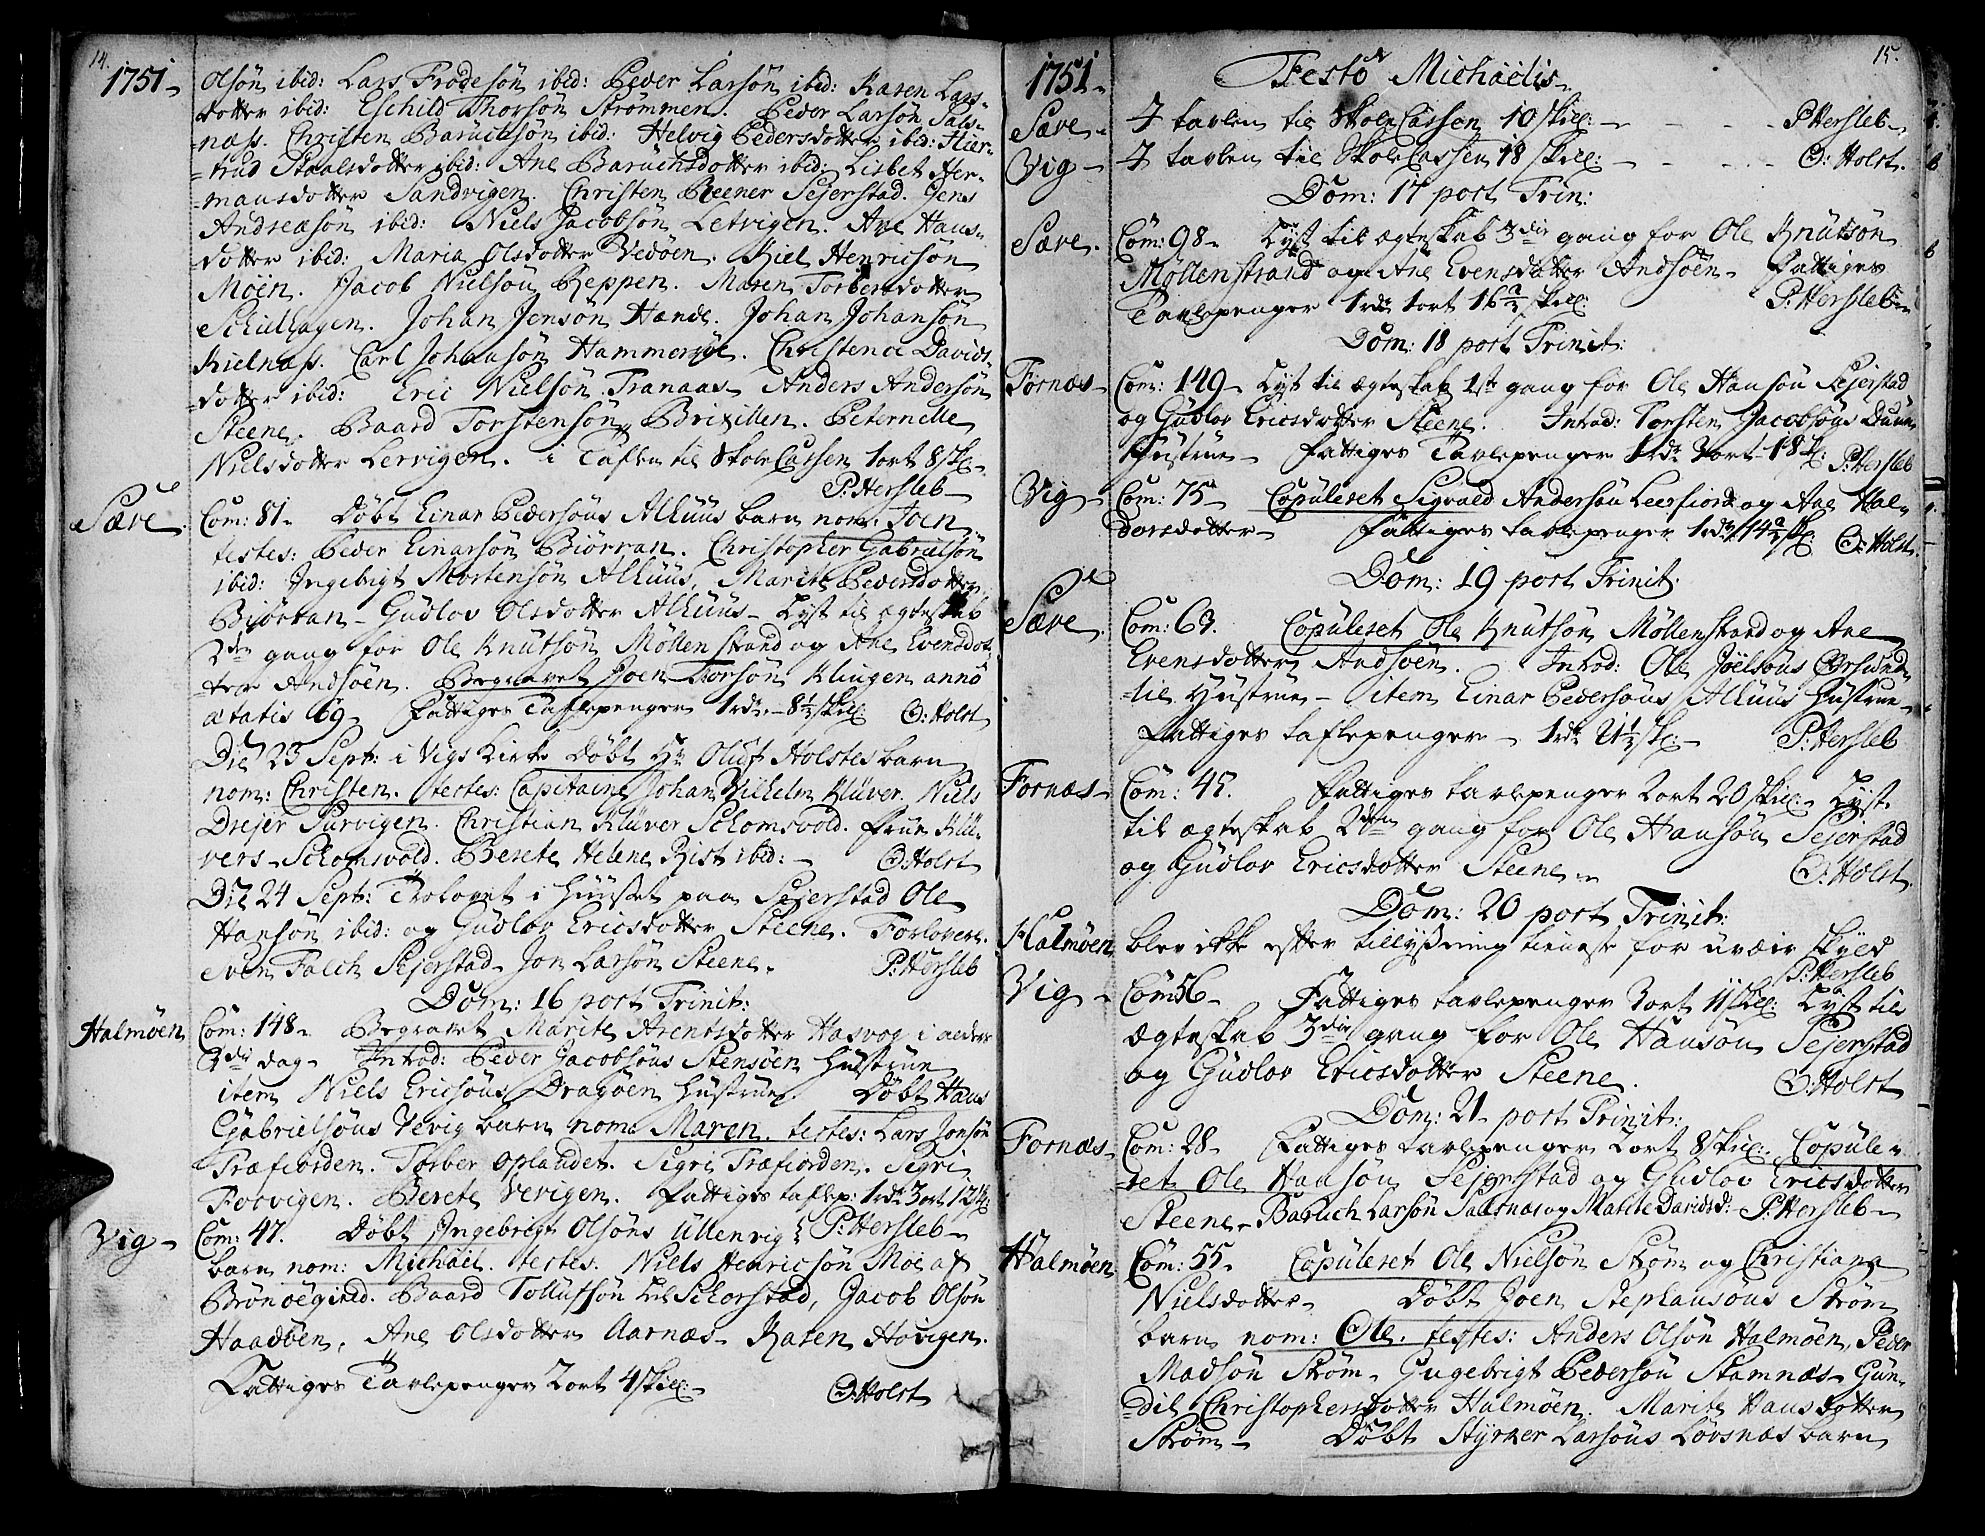 14.
1751
Olsön ibid: Lars Frodesön ibid: Peder Larsön ibid: Karen Lars-
dotter ibid: Eschild Thorsön Strømmen. Peder Larsön Sals-
næss. Christen Baruchsön ibid: Helvig Pedersdotter ibid: Hier-
trud Staalsdotter ibid: Ane Baruchsdotter ibid: Lisbet Her-
mansdotter Sandvigen. Christen Reener Sejerstad. Jens
Andreæsön ibid: Niels Jacobsön Letvigen. Ane Hans-
dotter ibid: Maria Olsdotter Vedöen. Kiel Henricsön
Möen. Jacob Nielsön Reppen. Maren Torbersdotter
Schulhagen. Johan Jensön Hande. Johan Johansön
Kielnæss. Carl Johansön Hammersöe. Christence Davids-
dotter ibid: Eric Nielsön Tranaas. Anders Andersön
Steene. Baard Torstensön Brixillen. Peternelle
Nielsdotter Lervigen. i Taflen til Skole Cassen 1 ort 8 skl.
P: Hersleb
Sære.
Com: 81. Döbt Einar Pedersöns Alhuus barn nom: Joen
testes: Peder Einarsön Biörran. Christopher Gabrielsön
ibid: Ingebrigt Mortensön Alhuus, Marite Pedersdotter
Biörran. Gudlov Olsdotter Alhuus. Lyst til ægteskab
2den gang for Ole Knutsön Möllenstrand og Ane Evensdot-
ter Andsöen. Begravet Joen Torsön Klingen anno
ætatis 69. Fattiges Taflepenger 1 rdr. 8½ skill: O: Holst
Die 23 Sept: i Vigs Kirke Döbt Hr Oluf Holstes barn
nom: Christen. testes: Capitaine Johan Vilhelm Klüver. Niels
Drejer Survigen. Christian Klüver Schomsvold. Frue Klü-
vers Schomsvold. Berete Helene Rist ibid: O: Holst
Die 24 Sept: Trolovet i Huuset paa Sejerstad Ole
Hansön ibid: og Gudlov Ericsdotter Steene. Forlovere
Sven Falch Sejerstad. Jon Larsön Steene. P: Hersleb
Dom: 16 post Trinit:
Halmöen
Com: 148. Begravet Marite Arentsdotter Hasvog i aeders
2di dag. Introd: Peder Jacobsöns Stensöen Hustrue
item Niels Ericsöns Dragöen Hustrue. Döbt Hans
Gabrielsöns Vevig barn nom: Maren. testes: Lars Jonsön
Træfiorden. Torber Oplander. Sigri Træfiorden. Sigri
Foevigen. Berete Verigen. Fattiges taflep: 1 rdr 3 ort 12 skl
P: Hersleb
Vig
Com: 47. Döbt Ingebrigt Olsöns Ullenvig
barn nom: Michael. testes: Niels Henricsön Möe af
Brönöegield. Baard Tollufsön Schorstad, Jacob Olsön
Haadöen, Ane Olsdotter Aarnæs. Karen Hovigen.
Fattiges Tavlepenger 2 ort 4 skill: O: Holst
15.
1751
Festo Michaëlis
Sære
I tavlen til Skole Cassen 10 skill: P: Hersleb
Vig
I tavlen til Skole Cassen 18 skill: O: Holst.
Dom: 17 post Trin:
Sære.
Com: 98. Lyst til ægteskab 3die gang for Ole Knutsön
Möllenstrand og Ane Evensdotter Andsöen. Fattiges
Tavlepenger 1 rdr 1 ort 16½ skill: P: Hersleb
Dom: 18 post Trinit:
Fornæs
Com: 149. Lyst til ægteskab 1ste gang for Ole Hansön Sejerstad
og Gudlov Ericsdotter Steene. Introd: Torsten Jacobsöns Duun
Hustrue. Fattiges Tavlepenger 1 rdr 2 ort 18 skl. P: Hersleb
Vig
Com: 75. Copuleret Sigvald Andersön Leerfiord og Ane Hal-
dorsdotter. Fattiges tavlepenger 1 rdr 14½ skl. O: Holst.
Dom: 19 post Trinit.
Sære.
Com: 63. Copuleret Ole Knutsön Möllenstrand og Ane
Evensdotter Andsöen. Introd: Ole Joëlsöns Örsund
til Hustrue. item Einar Pedersöns Alhuus Hustrue.
Fattiges taflepenger 1 rdr 21½ skl: P: Hersleb
Fornæs
Com: 45. Fattiges tavlepenger 2 ort 20 skill: Lyst
til ægteskab 2den gang for Ole Hansön Sejerstad
og Gudlov Ericsdotter Steene. O: Holst.
Dom: 20 post Trinit:
Halmöen
blev ikke efter tillyßning tieneste for uvæir skyld
P: Hersleb
Vig
Com 56. Fattiges tavlepenger 3 ort 11 skill: Lyst til
Ægteskab 3die gang for Ole Hansön Sejerstad
og Gudlov Ericsdotter Steene. O: Holst
Dom: 21 post Trinit:
Fornæs
Com: 28. Fattiges tavlepenger 2 ort 8 skill: Copule-
ret Ole Hansön Sejerstad og Gudlov Ericsdotter
Steene. Baruch Larsön Salsnæs og Marite Davidsd: P: Hersleb
Halmöen
Com: 55. Copuleret Ole Nielsön Ström og Christiana
Nielsdotter. Döbt Joen Stephansöns Ström
barn nom: Ole. testes: Anders Olsön Halmöen, Peder
Madsön Ström. Ingebrigt Pedersön Stamnæs. Gun-
dil Christophersdotter Halmöen. Marite Hansdotter
Ström. Döbt Styrker Larsöns Lövsnæs barn